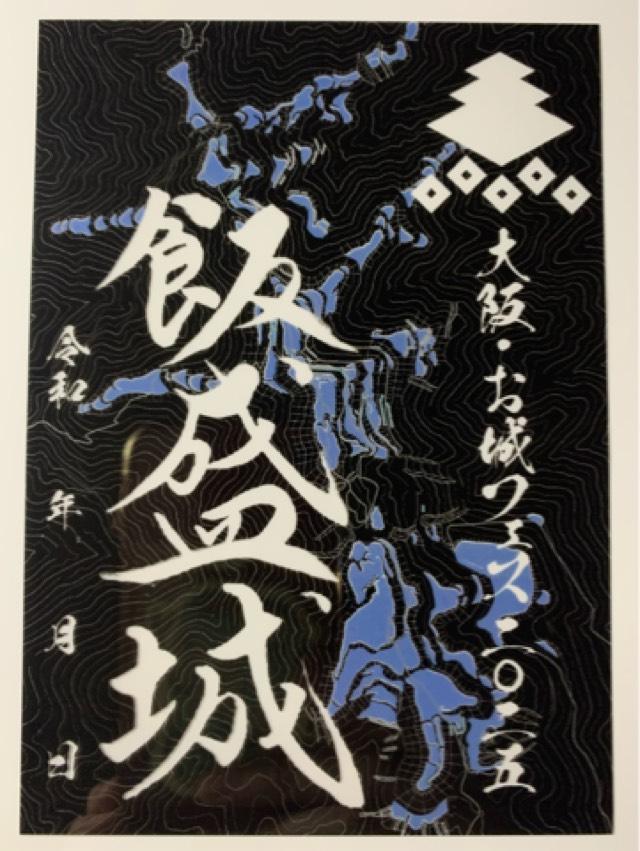 大阪・お城フェス二〇二五
飯盛城
令和 年 月 日